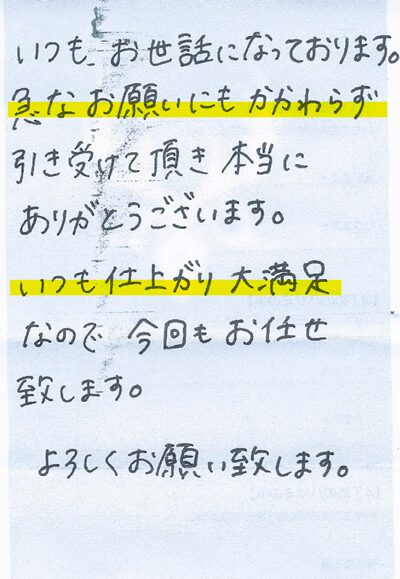 いつも お世話になっております。
急なお願いにもかかわらず
引き受けて頂き 本当に
ありがとうございます。
いつも仕上がり 大満足
なので 今回も お任せ
致します。
よろしくお願い致します。